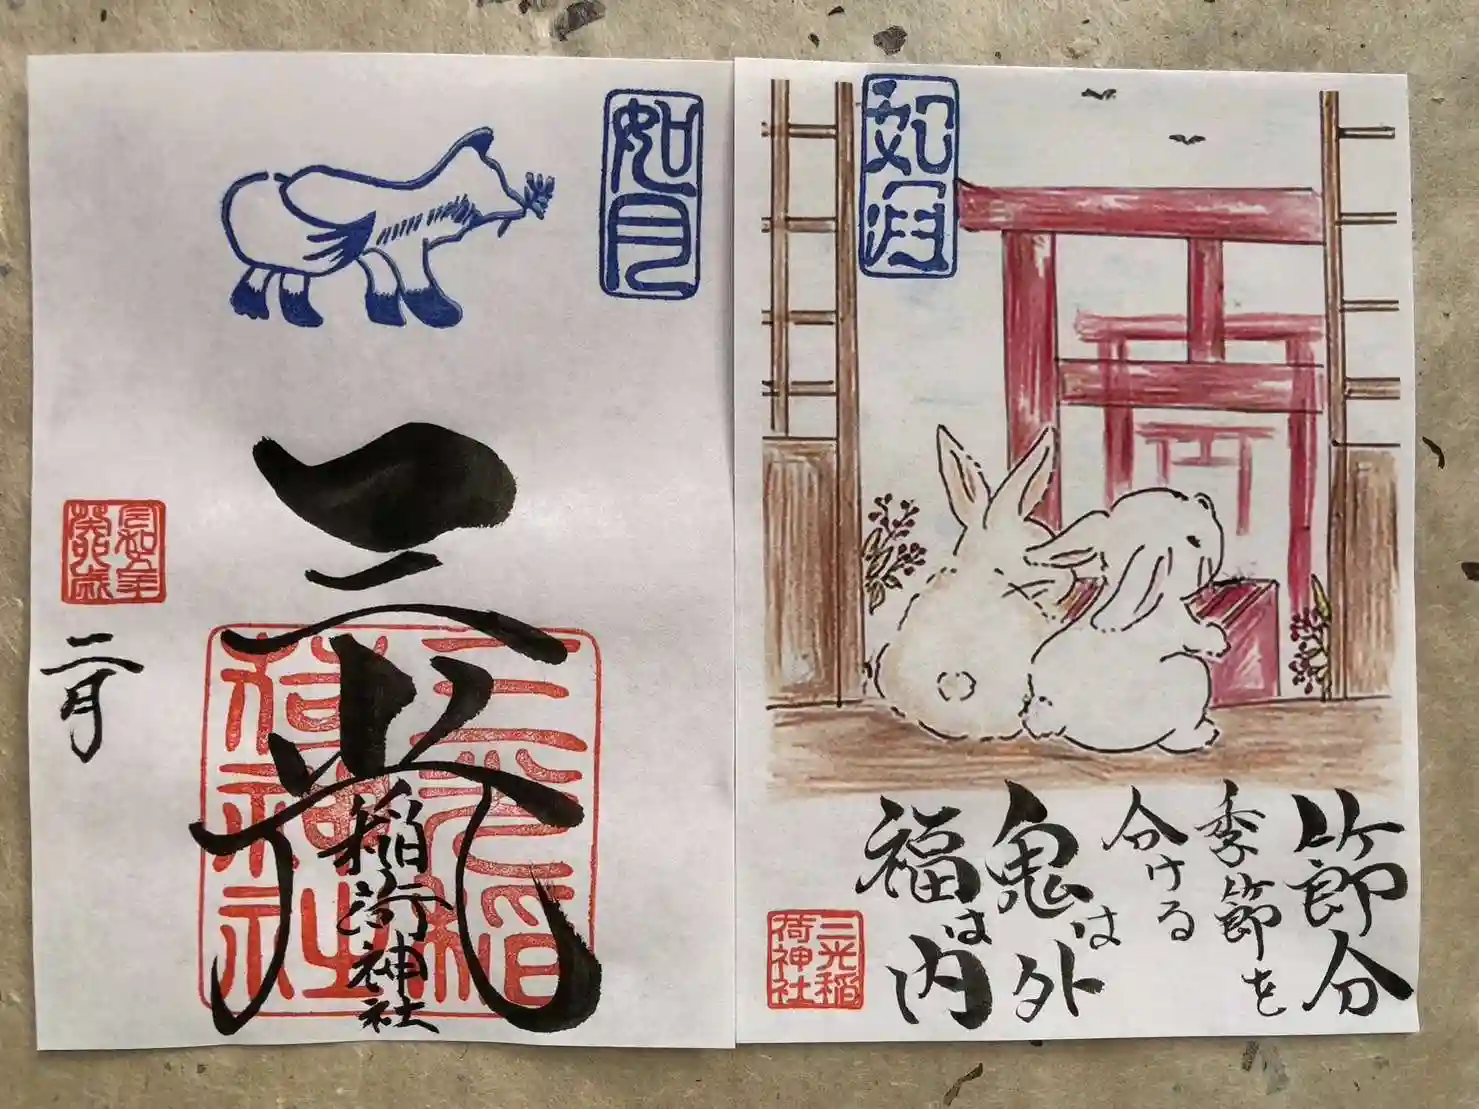 如月
三光
稲荷神社
三光稲
荷神社
令和五年
癸卯歳
二月
如月
節分
季節を
分ける
鬼は外
福は内
三光稲
荷神社